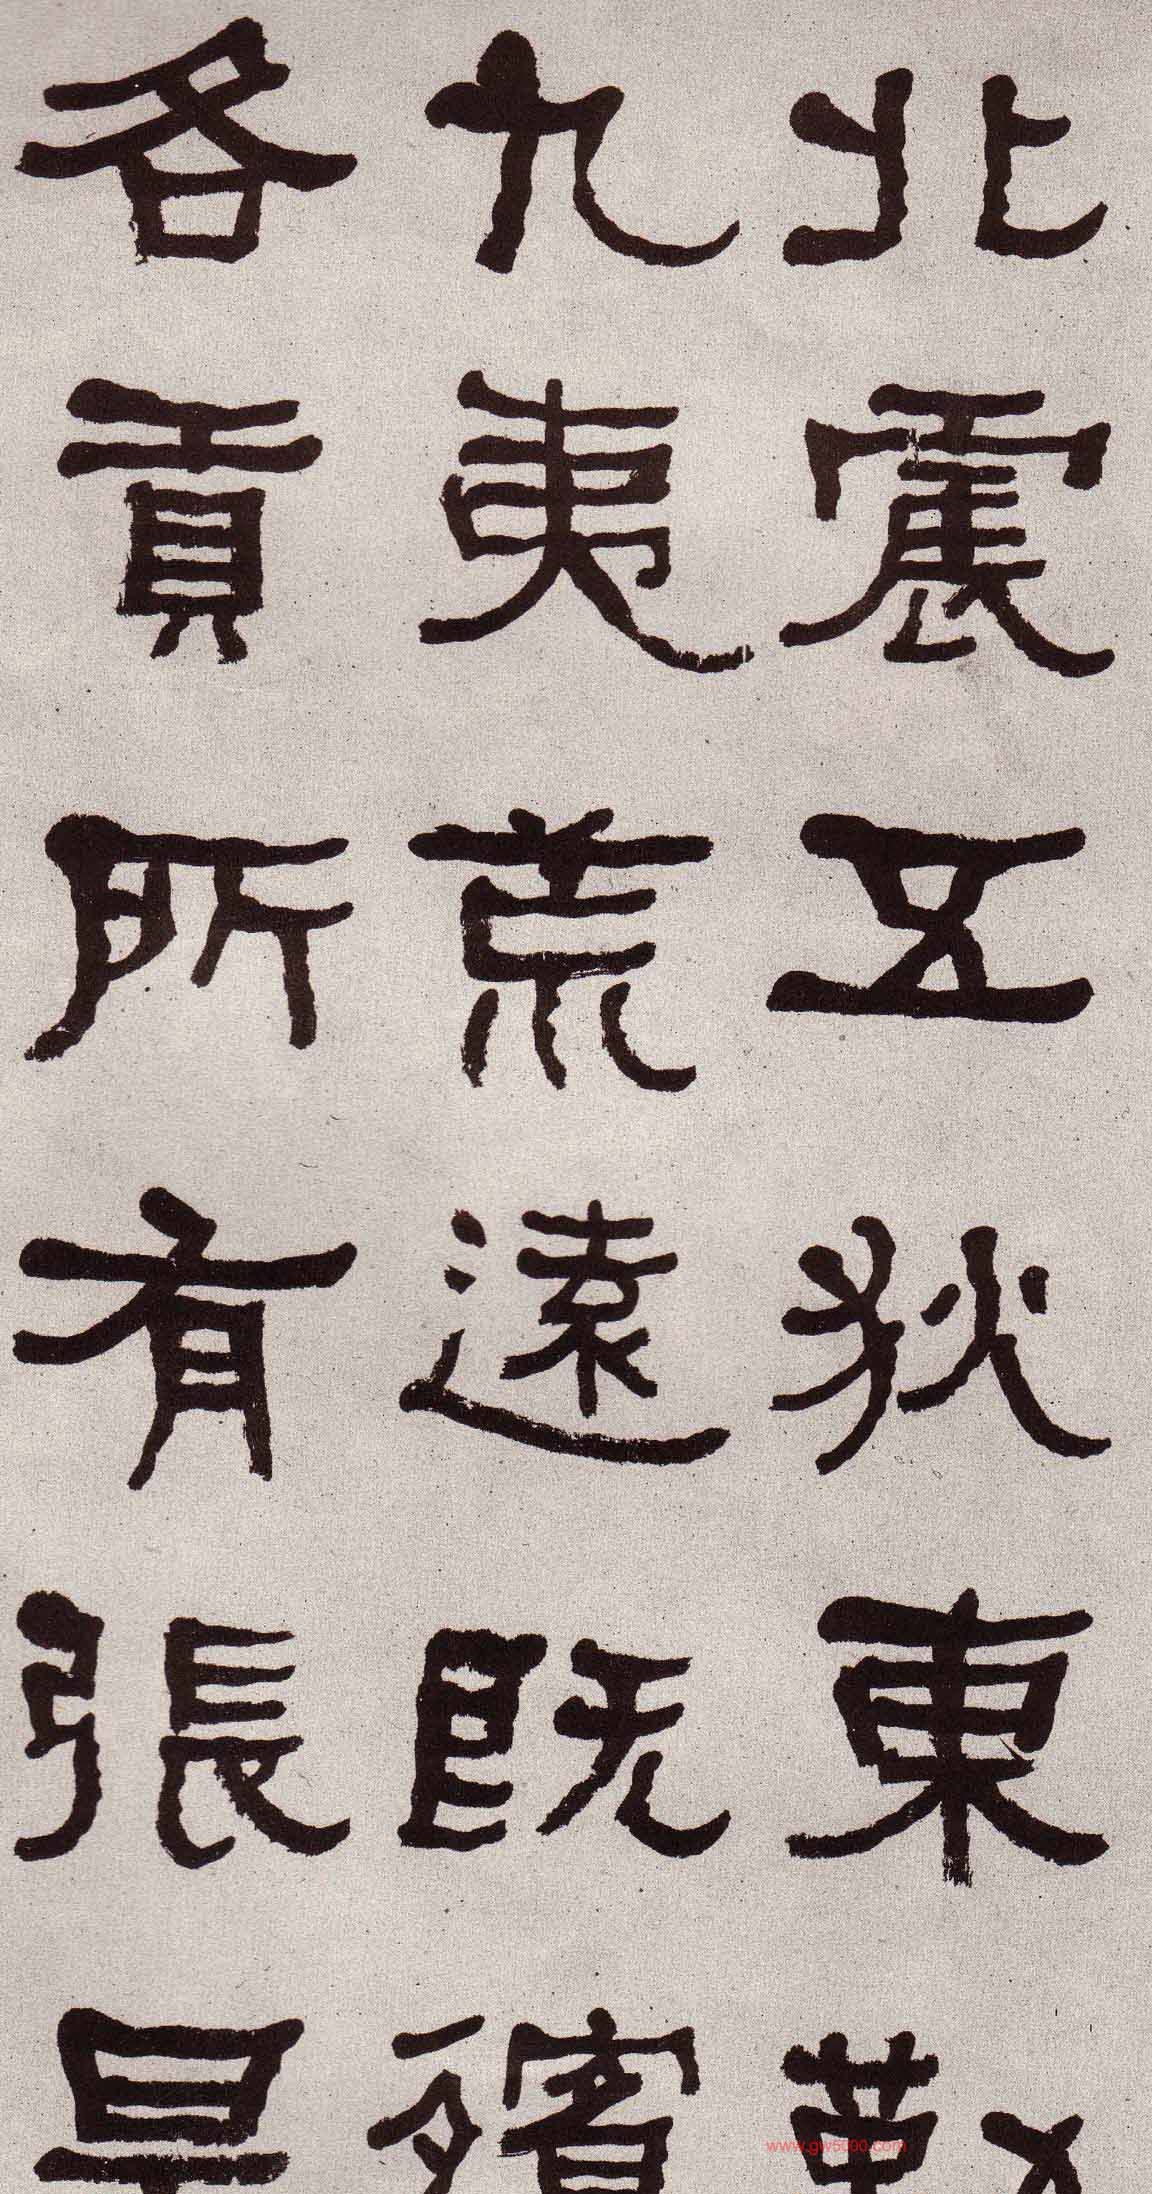 北震五狄東勤
九夷荒遠既殯
各貢所有張是
www.gw5000.com